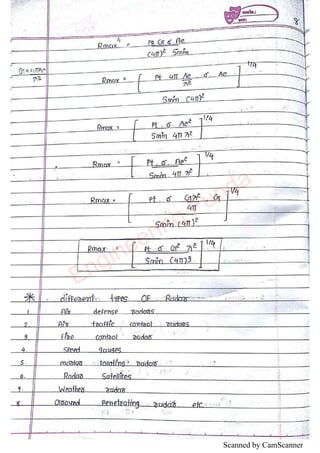 8
Rmax⁴ = Pt G σ Ae / (4π)² Smin
Rmax = [ Pt 4π Ae/λ² . σ . Ae / Smin (4π)² ]^1/4
Rmax = [ Pt . σ . Ae² / Smin 4π λ² ]^1/4
Rmax = [ Pt . σ . Ae² / Smin 4π λ² ]^1/4
Rmax = [ Pt . σ Gλ²/4π G / Smin (4π)² ]^1/4
Rmax = [ Pt σ G² λ² / Smin (4π)3 ]^1/4
* different types OF Radar
1. Air defense radars
2. Air traffic control radars
3 Fire control radar
4. Speed gauges
5. radars
6. Radar Satellites
7. Weather radar
8. Ground Penetrating radar etc.
Scanned by CamScanner